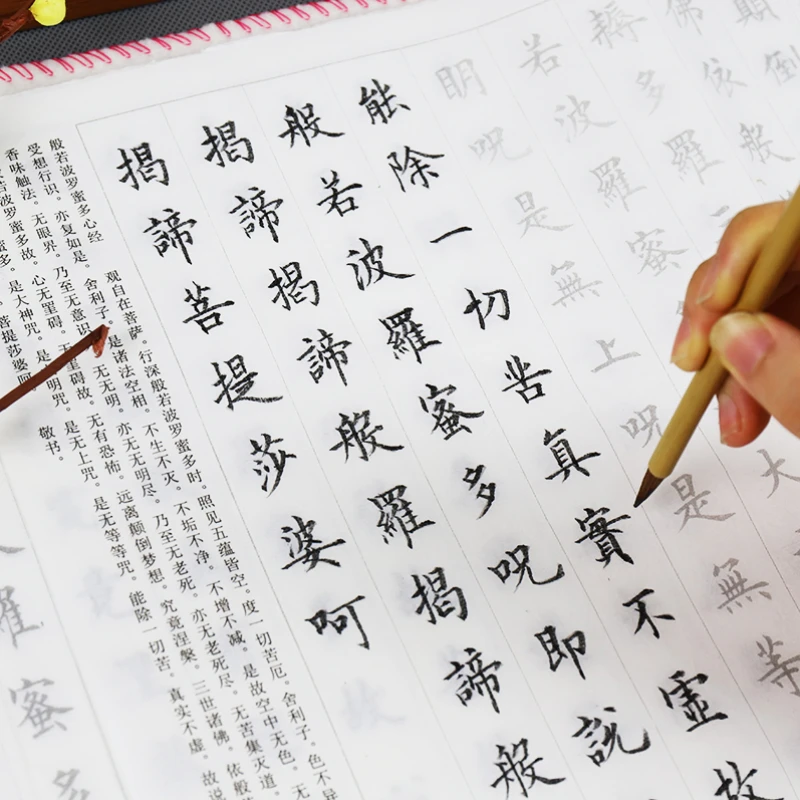 顛倒
佛依般
耨多羅三
若波羅蜜大
明呪是無上呪是無等
能除一切苦真實不虛故
般若波羅蜜多呪即說
揭諦揭諦般羅揭諦般
揭諦菩提莎婆呵
般若波罗蜜多心经 观自在菩萨。行深般若波罗蜜多时。照见五蕴皆空。度一切苦厄。舍利子。色不异
受想行识。亦复如是。舍利子。是诸法空相。不生不灭。不垢不净。不增不减。是故空中无色。无
香味触法。无眼界。乃至无意识 无无明。亦无无明尽。乃至无老死。亦无老死尽。无苦集灭道。
若波罗蜜多故。心无罣碍。无罣碍故。无有恐怖。远离颠倒梦想。究竟涅槃。三世诸佛。依般
蜜多。是大神咒。是 明咒。是无上咒。是无等等咒。能除一切苦。真实不虚。故说
菩提莎婆呵 敬书。
羅蜜多